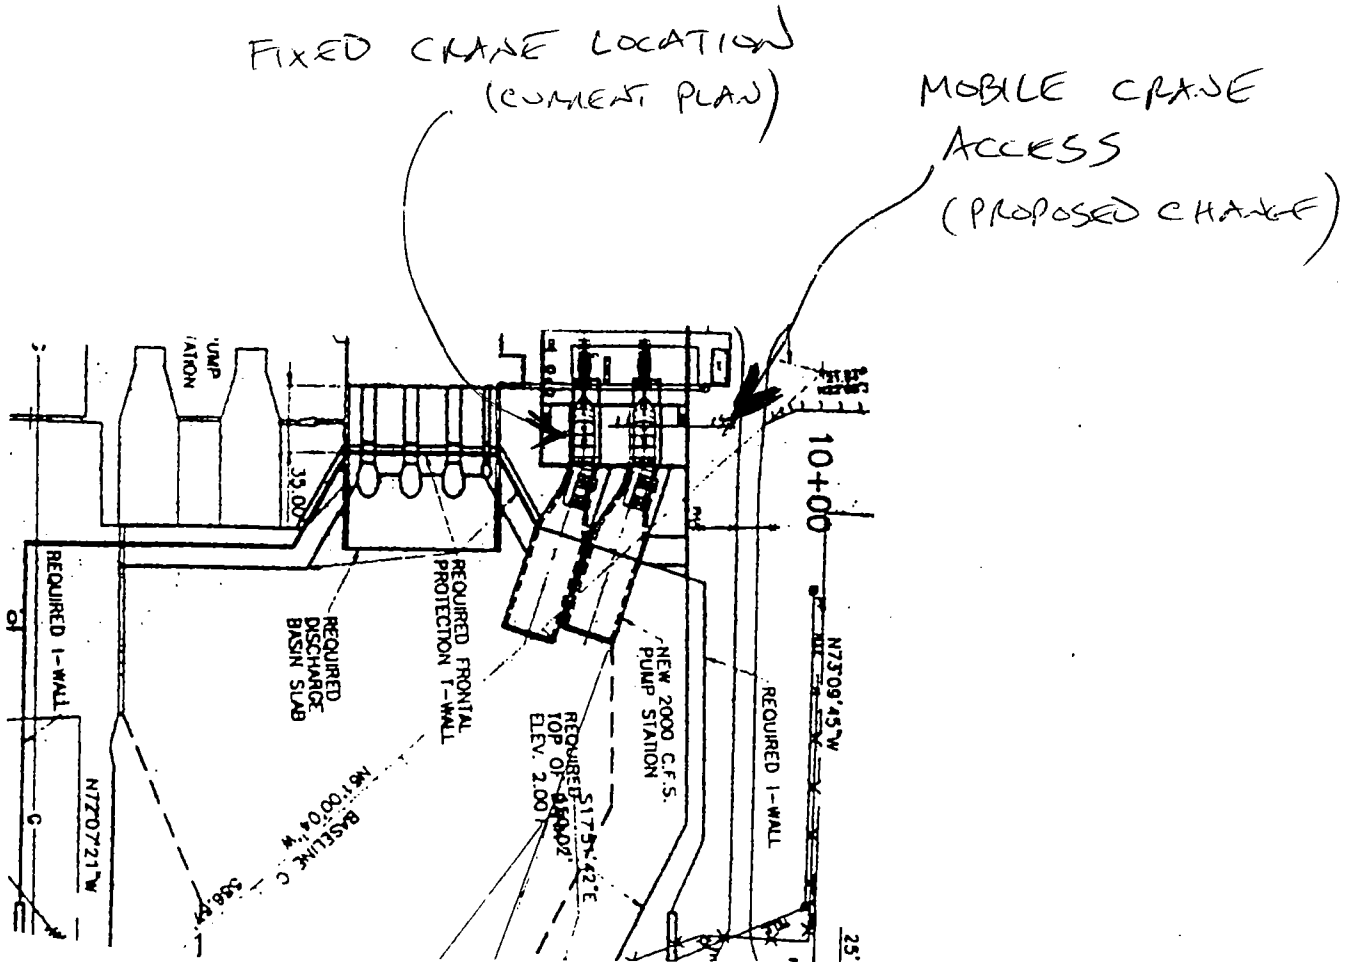 FIXED CRANE LOCATION
(CURRENT PLAN)
MOBILE CRANE
ACCESS
(PROPOSED CHANGE)
UMP
ATION
35.00
10+00
N73°09'45"W
REQUIRED I-WALL
REQUIRED
DISCHARGE
BASIN SLAB
REQUIRED FRONTAL
PROTECTION T-WALL
NEW 2000 C.F.S.
PUMP STATION
REQUIRED I-WALL
REQUIRED
TOP OF
ELEV. 2.00
S17°51'42"E
BASELINE C
N61°00'04"W
N72°07'21"W
C
25'